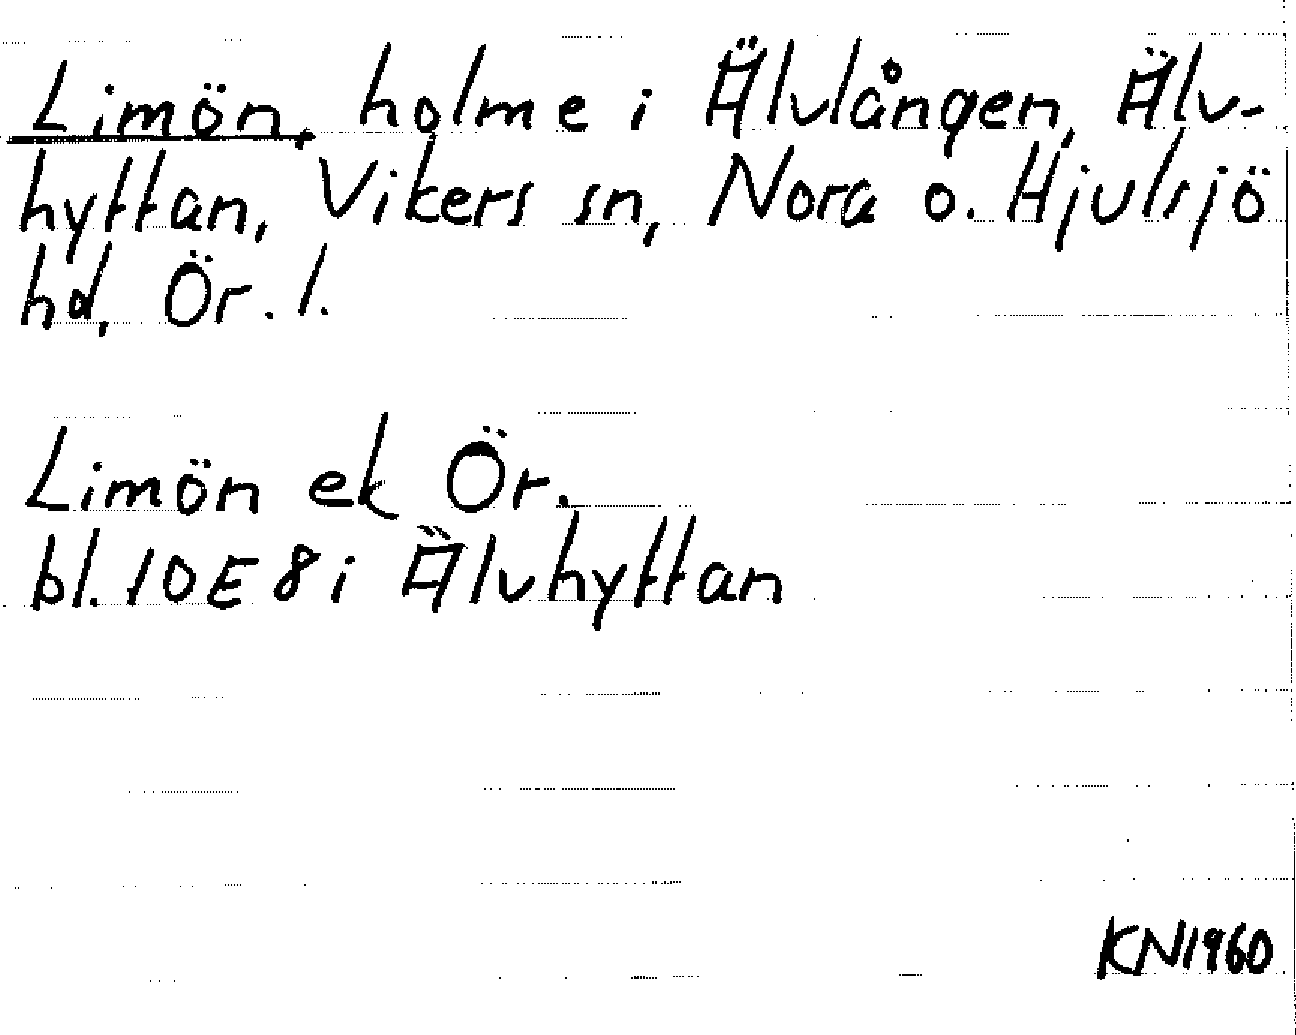 Limön, holme i Älvlången, Älv-
hyttan, Vikers sn, Nora o. Hjulsjö
hd, Ör. l.
Limön ek Ör.
bl. 10E8i Älvhyttan
KN1960